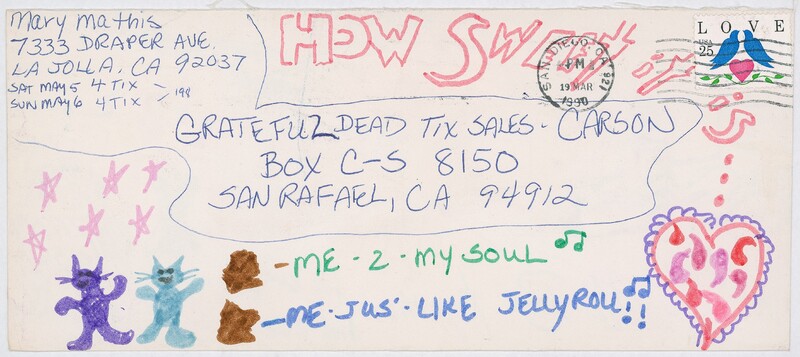 Mary Mathis
7333 DRAPER AVE.
LA JOLLA, CA 92037
SAT MAY 5 4 TIX
SUN MAY 6 4 TIX
HOW SWEET it
iS......
SAN DIEGO, CA 921
PM
19 MAR
1990
LOVE
USA
25
GRATEFUL DEAD TIX SALES - CARSON
BOX C-S 8150
SAN RAFAEL, CA 94912
-ME-2-MY SOUL
-ME-JUS'-LIKE JELLYROLL!!